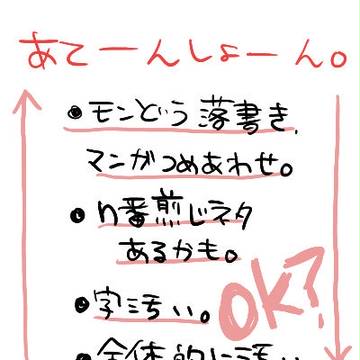 あてーんしょーん。
●モンどう落書き、
マンガつめあわせ。
●n番煎じネタ
あるかも。
●字汚い。
ok?
●全体的に汚い